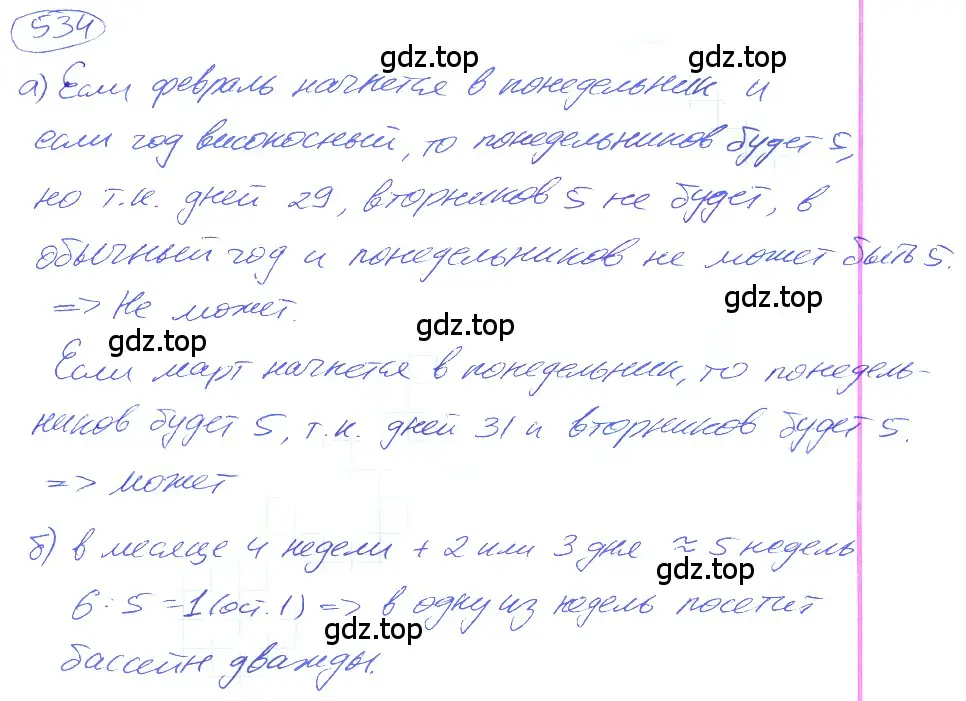 534
gdz.top gdz.top
а) Если февраль начнется в понедельник и
если год високосный, то понедельников будет 5,
но т.к. дней 29, вторников 5 не будет, в
обычный год и понедельников не может быть 5.
=> Не может.
gdz.top gdz.top gdz.top
Если март начнется в понедельник, то понедель-
ников будет 5, т.к. дней 31 и вторников будет 5.
=> может
б) в месяце 4 недели + 2 или 3 дня ≈ 5 недель
gdz.top
6 : 5 = 1 (ост. 1) => в одну из недель посетит
gdz.top
бассейн дважды.